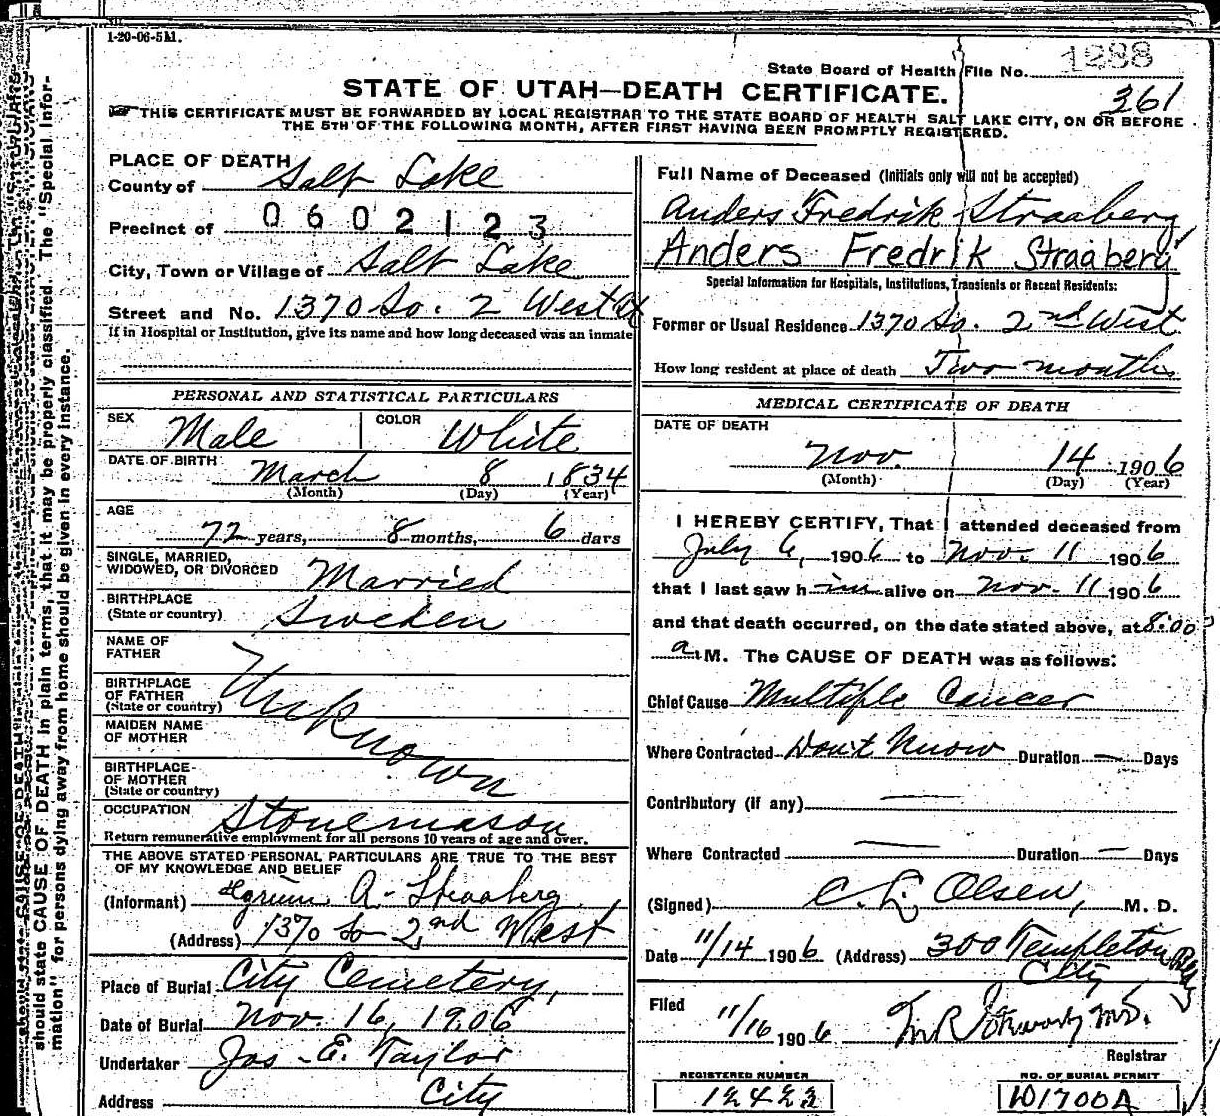 1-20-06-5M.
State Board of Health File No. 1288
361
STATE OF UTAH—DEATH CERTIFICATE.
THIS CERTIFICATE MUST BE FORWARDED BY LOCAL REGISTRAR TO THE STATE BOARD OF HEALTH SALT LAKE CITY, ON OR BEFORE
THE 5TH OF THE FOLLOWING MONTH, AFTER FIRST HAVING BEEN PROMPTLY REGISTERED.
PLACE OF DEATH
County of Salt Lake
Precinct of 0602123
City, Town or Village of Salt Lake
Street and No. 1370 So. 2 West
If in Hospital or Institution, give its name and how long deceased was an inmate
PERSONAL AND STATISTICAL PARTICULARS
SEX Male COLOR White
DATE OF BIRTH March 8 1834
(Month) (Day) (Year)
AGE
72 years, 8 months, 6 days
SINGLE, MARRIED,
WIDOWED, OR DIVORCED Married
BIRTHPLACE
(State or country) Sweden
NAME OF
FATHER
BIRTHPLACE
OF FATHER
(State or country) Unknown
MAIDEN NAME
OF MOTHER
BIRTHPLACE
OF MOTHER
(State or country)
OCCUPATION Stonemason
Return remunerative employment for all persons 10 years of age and over.
THE ABOVE STATED PERSONAL PARTICULARS ARE TRUE TO THE BEST
OF MY KNOWLEDGE AND BELIEF
(Informant) A. Straaberg
(Address) 1370 So 2nd West
Place of Burial City Cemetery,
Date of Burial Nov. 16, 1906
Undertaker Jos. E. Taylor
Address City
Full Name of Deceased (Initials only will not be accepted)
Anders Fredrik Straaberg
Anders Fredrik Straaberg
Special Information for Hospitals, Institutions, Transients or Recent Residents:
Former or Usual Residence 1370 So. 2nd West
How long resident at place of death Two months
MEDICAL CERTIFICATE OF DEATH
DATE OF DEATH
Nov. 14 1906
(Month) (Day) (Year)
I HEREBY CERTIFY, That I attended deceased from
July 6, 1906 to Nov. 11 1906
that I last saw him alive on Nov. 11 1906
and that death occurred, on the date stated above, at 8:00
a.M. The CAUSE OF DEATH was as follows:
Chief Cause Multiple Cancer
Where Contracted Don't Know Duration — Days
Contributory (if any) —
Where Contracted — Duration — Days
(Signed) C. L. Olsen, M. D.
Date 11/14 1906 (Address) 300 Templeton
City
Filed 11/16 1906
Registrar
REGISTERED NUMBER NO. OF BURIAL PERMIT
12423 D1700A
should state CAUSE OF DEATH in plain terms, that it may be properly classified. The "Special Infor-
mation" for persons dying away from home should be given in every instance.